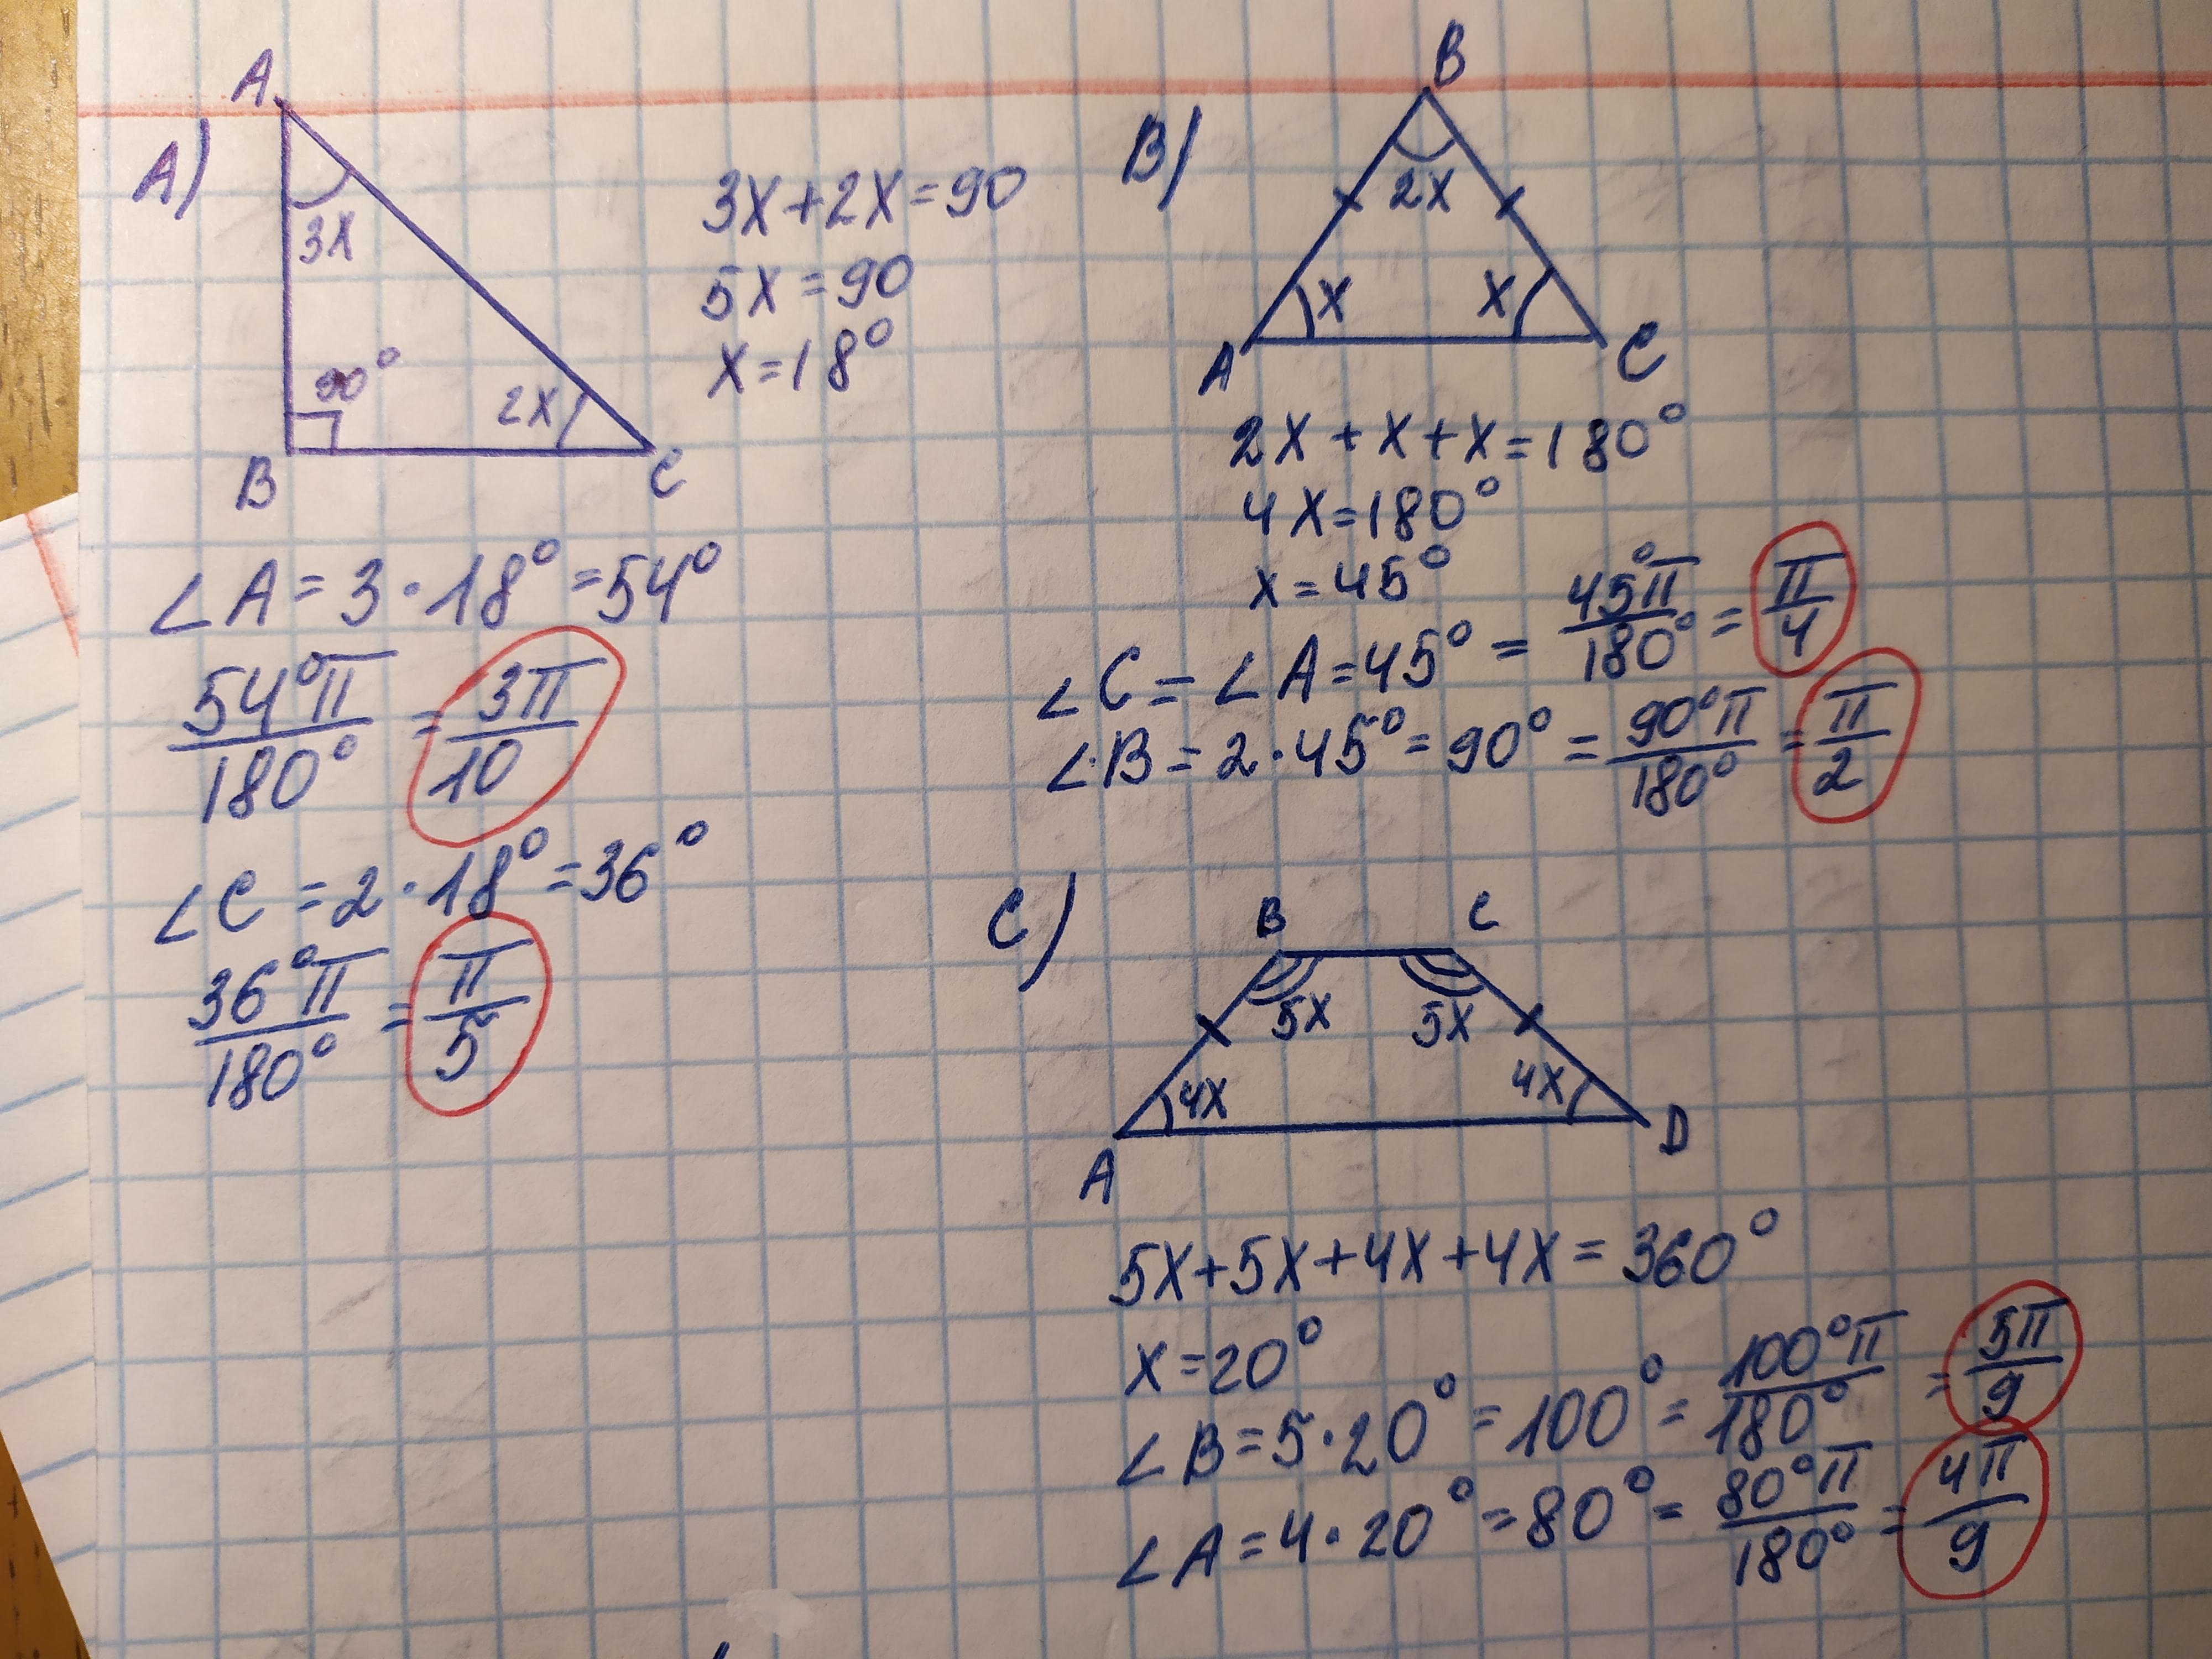 A)
A
3x
90°
2x
B
C
3x+2x=90
5x=90
x=18°
∠A=3·18°=54°
54°π/180° = 3π/10
∠C=2·18°=36°
36°π/180° = π/5
B)
B
2x
x
x
A
C
2x+x+x=180°
4x=180°
x=45°
∠C=∠A=45°=45°π/180°=π/4
∠B=2·45°=90°=90°π/180°=π/2
C)
B
C
5x
5x
4x
4x
A
D
5x+5x+4x+4x=360°
x=20°
∠B=5·20°=100°=100°π/180°=5π/9
∠A=4·20°=80°=80°π/180°=4π/9